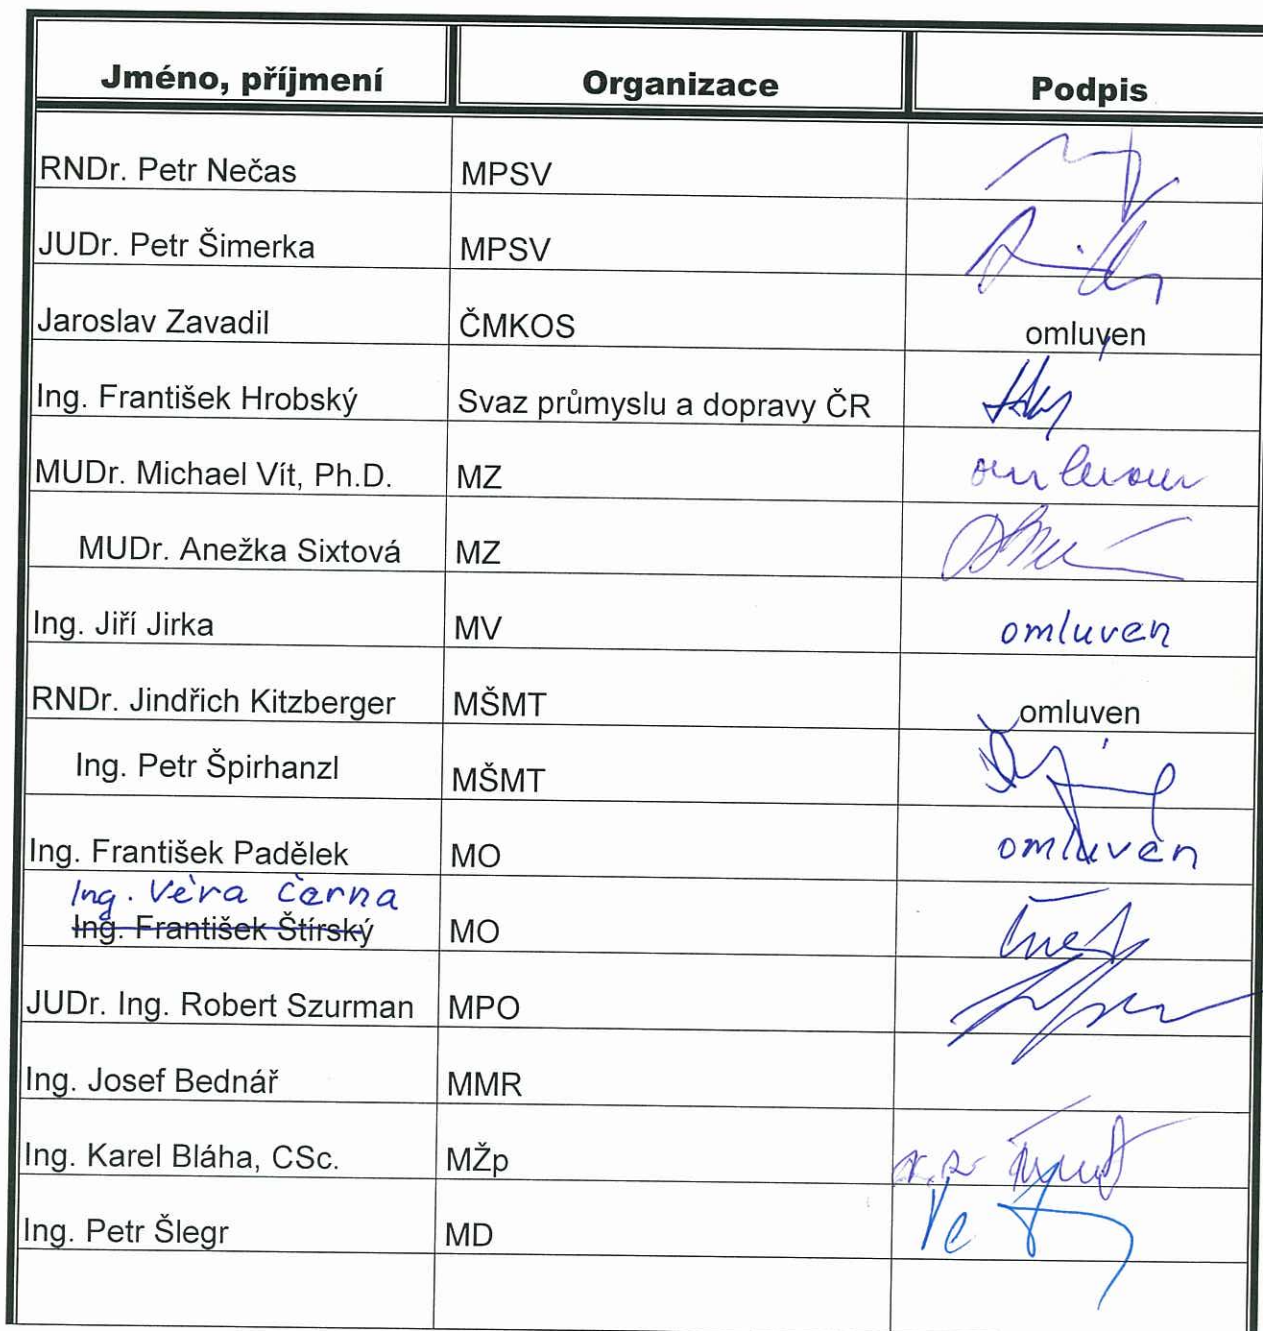 Jméno, příjmení Organizace Podpis
RNDr. Petr Nečas MPSV
JUDr. Petr Šimerka MPSV
Jaroslav Zavadil ČMKOS omluven
Ing. František Hrobský Svaz průmyslu a dopravy ČR
MUDr. Michael Vít, Ph.D. MZ omluven
MUDr. Anežka Sixtová MZ
Ing. Jiří Jirka MV omluven
RNDr. Jindřich Kitzberger MŠMT omluven
Ing. Petr Špirhanzl MŠMT
Ing. František Padělek MO omluven
Ing. Věra Černa
Ing. František Štírský MO
JUDr. Ing. Robert Szurman MPO
Ing. Josef Bednář MMR
Ing. Karel Bláha, CSc. MŽp
Ing. Petr Šlegr MD